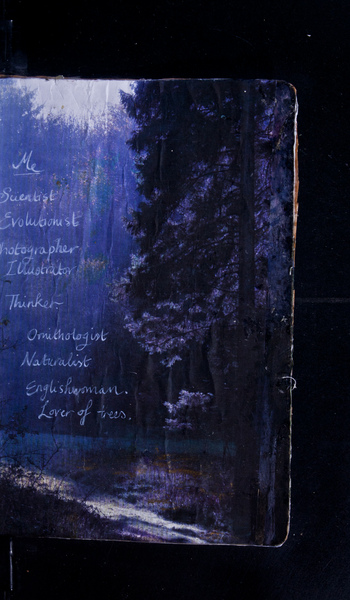 Me
Scientist
Evolutionist
Photographer
Illustrator
Thinker
Ornithologist
Naturalist
Englishwoman.
Lover of trees.